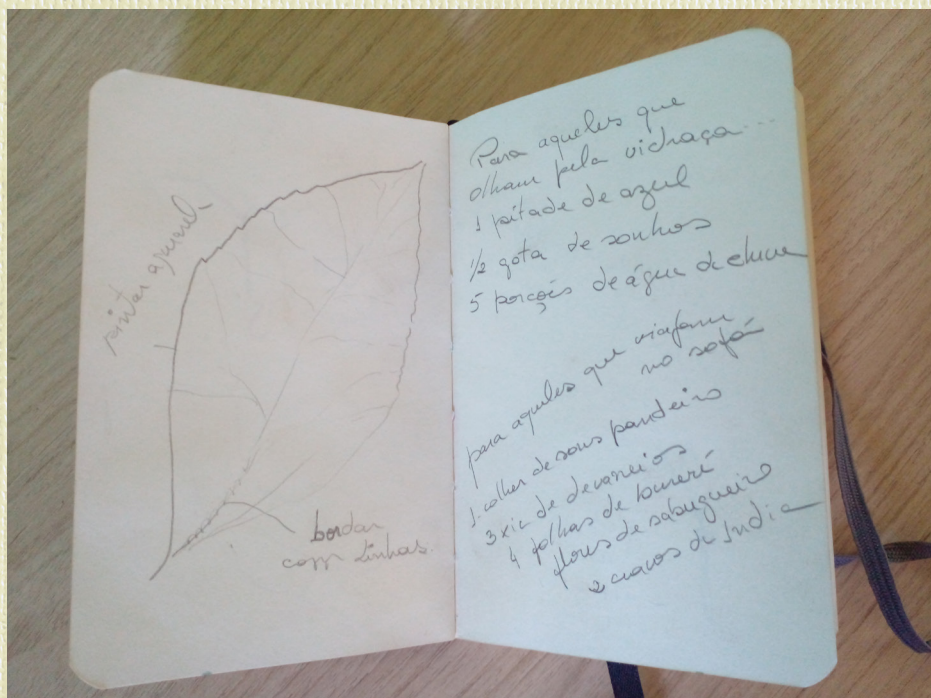 pintar aquarela
bordar
com linhas.
Para aqueles que
olham pela vidraça...
1 pitade de azul
1/2 gota de sonhos
5 porções de água de chuva
para aqueles que viajam
no sofá
1 colher de sons pandeiro
3 xic de devaneios
4 folhas de
flores de sabugueiro
2 cravos da India